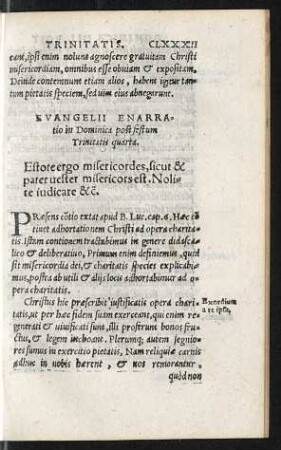 TRINITATIS. CLXXXII
eant, ipsi enim nolunt agnoscere gratuitam Christi
misericordiam, omnibus esse obuiam & expositam.
Deinde contemnunt etiam alios, habent igitur tan
tum pietatis speciem, sed uim eius abnegarunt.
EVANGELII ENARRA-
tio in Dominica post festum
Trinitatis quarta.
Estote ergo misericordes, sicut &
pater uester misericors est. Noli-
te iudicare &c̄.
PRæsens cōtio extat apud B. Luc. cap. 6. Hæc cō
tinet adhortationem Christi ad opera charita-
tis. Istam contionem tractabimus in genere didasca-
lico & deliberatiuo, Primum enim definiemus, quid
sit misericordia dei, & charitatis species explicabi-
mus, postea ab utili & dijs locis adhortabimur ad
opera charitatis.
Christus hic præscribit iustificatis opera chari-
tatis, ut per hæc fidem suam exerceant, qui enim re-
generati & uiuificati sunt, illi proferunt bonos fru-
ctus, & legem inchoant. Plerumq; autem segnio-
res sumus in exercitio pietatis, Nam reliquiæ carnis
adhuc in nobis hærent, & nos remorantur,
Exordium
a re ipsa,
quòd non